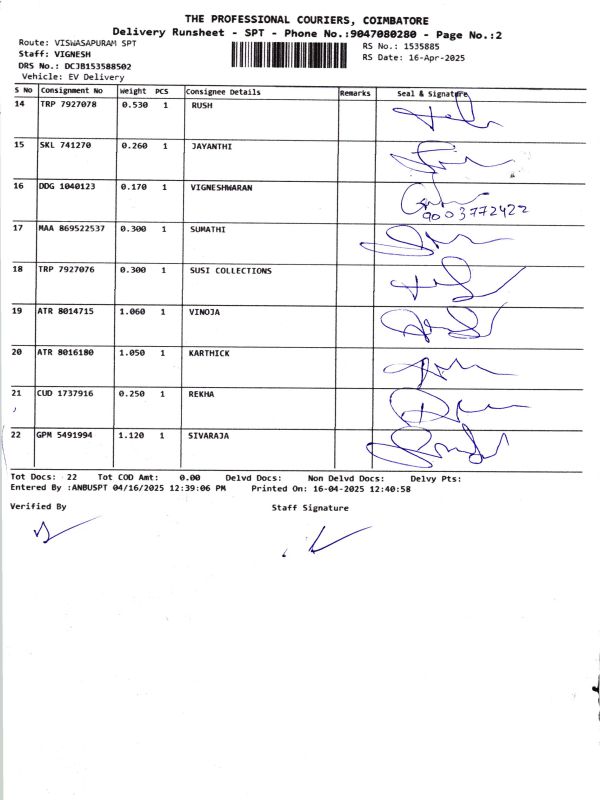 THE PROFESSIONAL COURIERS, COIMBATORE
Delivery Runsheet - SPT - Phone No.:9047080280 - Page No.:2
Route: VISWASAPURAM SPT
RS No.: 1535885
Staff: VIGNESH
RS Date: 16-Apr-2025
DRS No.: DCJB153588502
Vehicle: EV Delivery
S No Consignment No Weight PCS Consignee Details Remarks Seal & Signature
14 TRP 7927078 0.530 1 RUSH
15 SKL 741270 0.260 1 JAYANTHI
16 DDG 1040123 0.170 1 VIGNESHWARAN
9003772422
17 MAA 869522537 0.300 1 SUMATHI
18 TRP 7927076 0.300 1 SUSI COLLECTIONS
19 ATR 8014715 1.060 1 VINOJA
20 ATR 8016180 1.050 1 KARTHICK
21 CUD 1737916 0.250 1 REKHA
22 GPM 5491994 1.120 1 SIVARAJA
Tot Docs: 22 Tot COD Amt: 0.00 Delvd Docs: Non Delvd Docs: Delvy Pts:
Entered By :ANBUSPT 04/16/2025 12:39:06 PM Printed On: 16-04-2025 12:40:58
Verified By Staff Signature